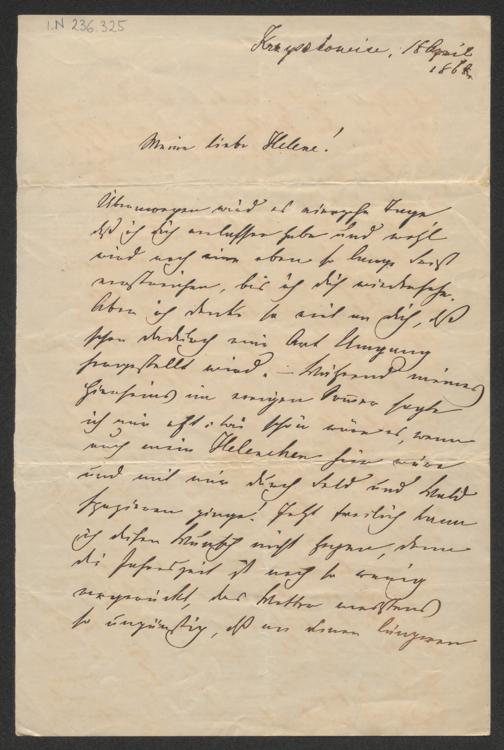 I.N 236.325
18 April
186
Meine liebe Helene!
Übermorgen wird es vierzehn Tage
daß ich dich verlassen habe und wohl
wird noch eine eben so lange Zeit
verstreichen, bis ich dich wiedersehe.
Aber ich denke so viel an dich, daß
schon dadurch eine Art Umgang
hergestellt wird. – Während meines
Hierseins im vorigen Sommer sagte
ich mir oft: wie schön wäre es, wenn
auch mein Helenchen hier wäre
und mit mir durch Feld und Wald
spazieren ginge! Jetzt freilich kann
ich diesen Wunsch nicht hegen, denn
die Jahreszeit ist noch so wenig
vorgerückt, das Wetter meistens
so ungünstig, daß an einen längeren